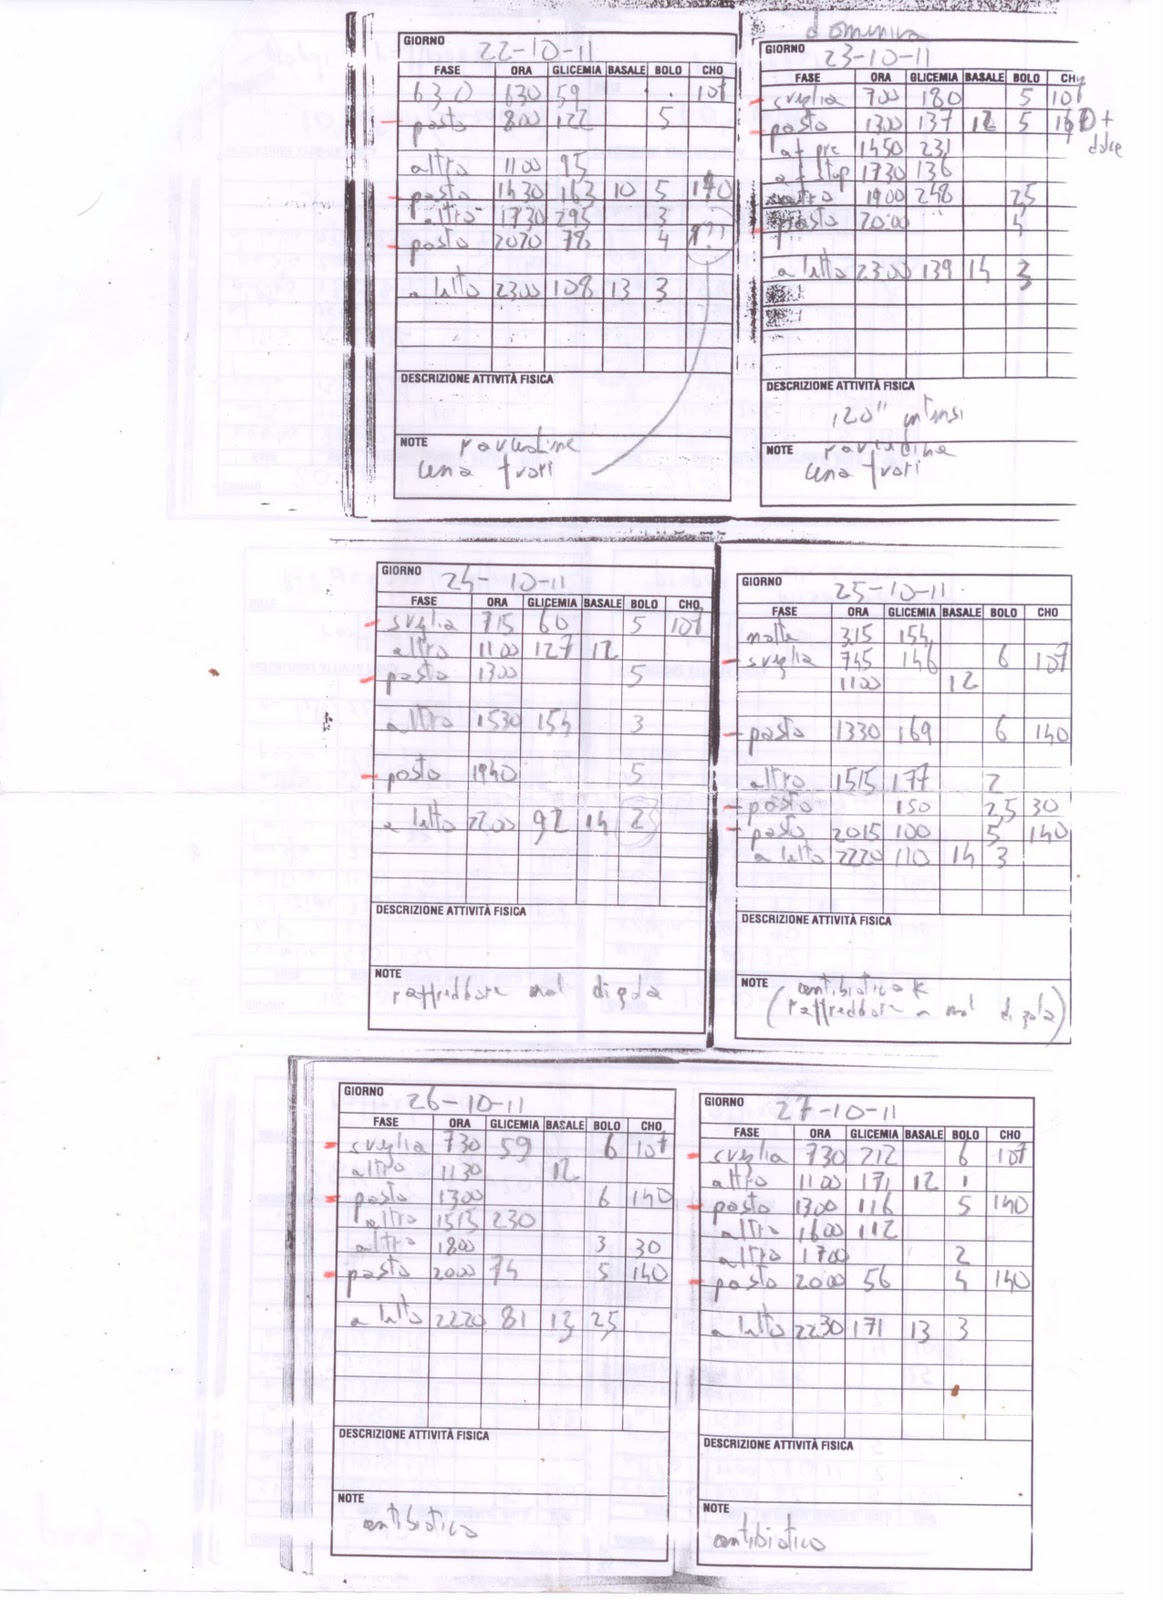 GIORNO 22-10-11
FASE ORA GLICEMIA BASALE BOLO CHO
630 630 59 107
pasto 800 122 5
altro 1100 95
pasto 1430 163 10 5 170
altro 1730 295 3
pasto 2020 78 4 ???
a letto 2300 108 13 3
DESCRIZIONE ATTIVITÀ FISICA
NOTE
cena fuori
domenica
GIORNO 23-10-11
FASE ORA GLICEMIA BASALE BOLO CHO
sveglia 700 180 5 107
pasto 1300 137 12 5 +
dolce
1450 231
stop 1730 136
1900 248 2,5
pasto 2000 4
a letto 2300 139 14 3
DESCRIZIONE ATTIVITÀ FISICA
120" intensi
NOTE
cena fuori
GIORNO 24-10-11
FASE ORA GLICEMIA BASALE BOLO CHO
sveglia 715 60 5 107
altro 1100 127 12
pasto 1300 5
altro 1530 154 3
pasto 1940 5
a letto 2200 92 14
DESCRIZIONE ATTIVITÀ FISICA
NOTE
raffreddore mal di gola
GIORNO 25-10-11
FASE ORA GLICEMIA BASALE BOLO CHO
notte 315 154
sveglia 745 146 6 107
1100 12
pasto 1330 169 6 140
altro 1515 177 2
pasto 150 2,5 30
pasto 2015 100 5 140
a letto 2220 110 14 3
DESCRIZIONE ATTIVITÀ FISICA
NOTE antibiotico
(raffreddore e mal di gola)
GIORNO 26-10-11
FASE ORA GLICEMIA BASALE BOLO CHO
sveglia 730 59 6 107
altro 1130 12
pasto 1300 6 140
altro 1515 230
altro 1800 3 30
pasto 2000 74 5 140
a letto 2220 81 13 2,5
DESCRIZIONE ATTIVITÀ FISICA
NOTE
antibiotico
GIORNO 27-10-11
FASE ORA GLICEMIA BASALE BOLO CHO
sveglia 730 212 6 107
altro 1100 171 12 1
pasto 1300 116 5 140
altro 1600 112
altro 1700 2
pasto 2000 56 4 140
a letto 2230 171 13 3
DESCRIZIONE ATTIVITÀ FISICA
NOTE
antibiotico